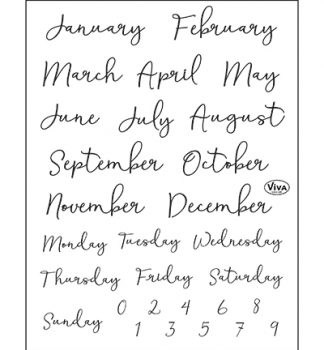 January February
March April May
June July August
September October
November December
VIVA
Monday Tuesday Wednesday
Thursday Friday Saturday
Sunday 0 2 4 6 8
1 3 5 7 9